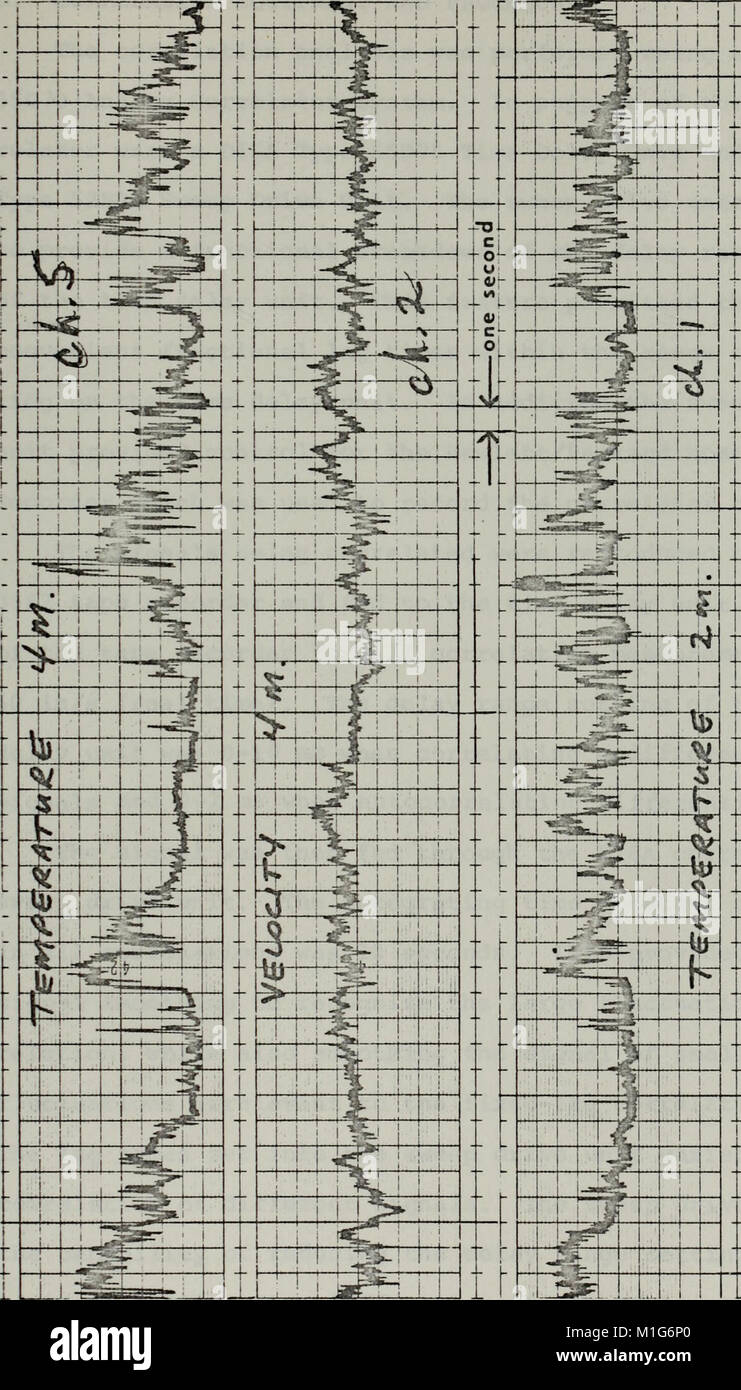 TEMPERATURE 4 m.
ch. 5
VELOCITY 4 m.
ch. 2
one second
TEMPERATURE 2 m.
ch. 1
42
alamy
alamy
Image ID: M1G6P0
www.alamy.com